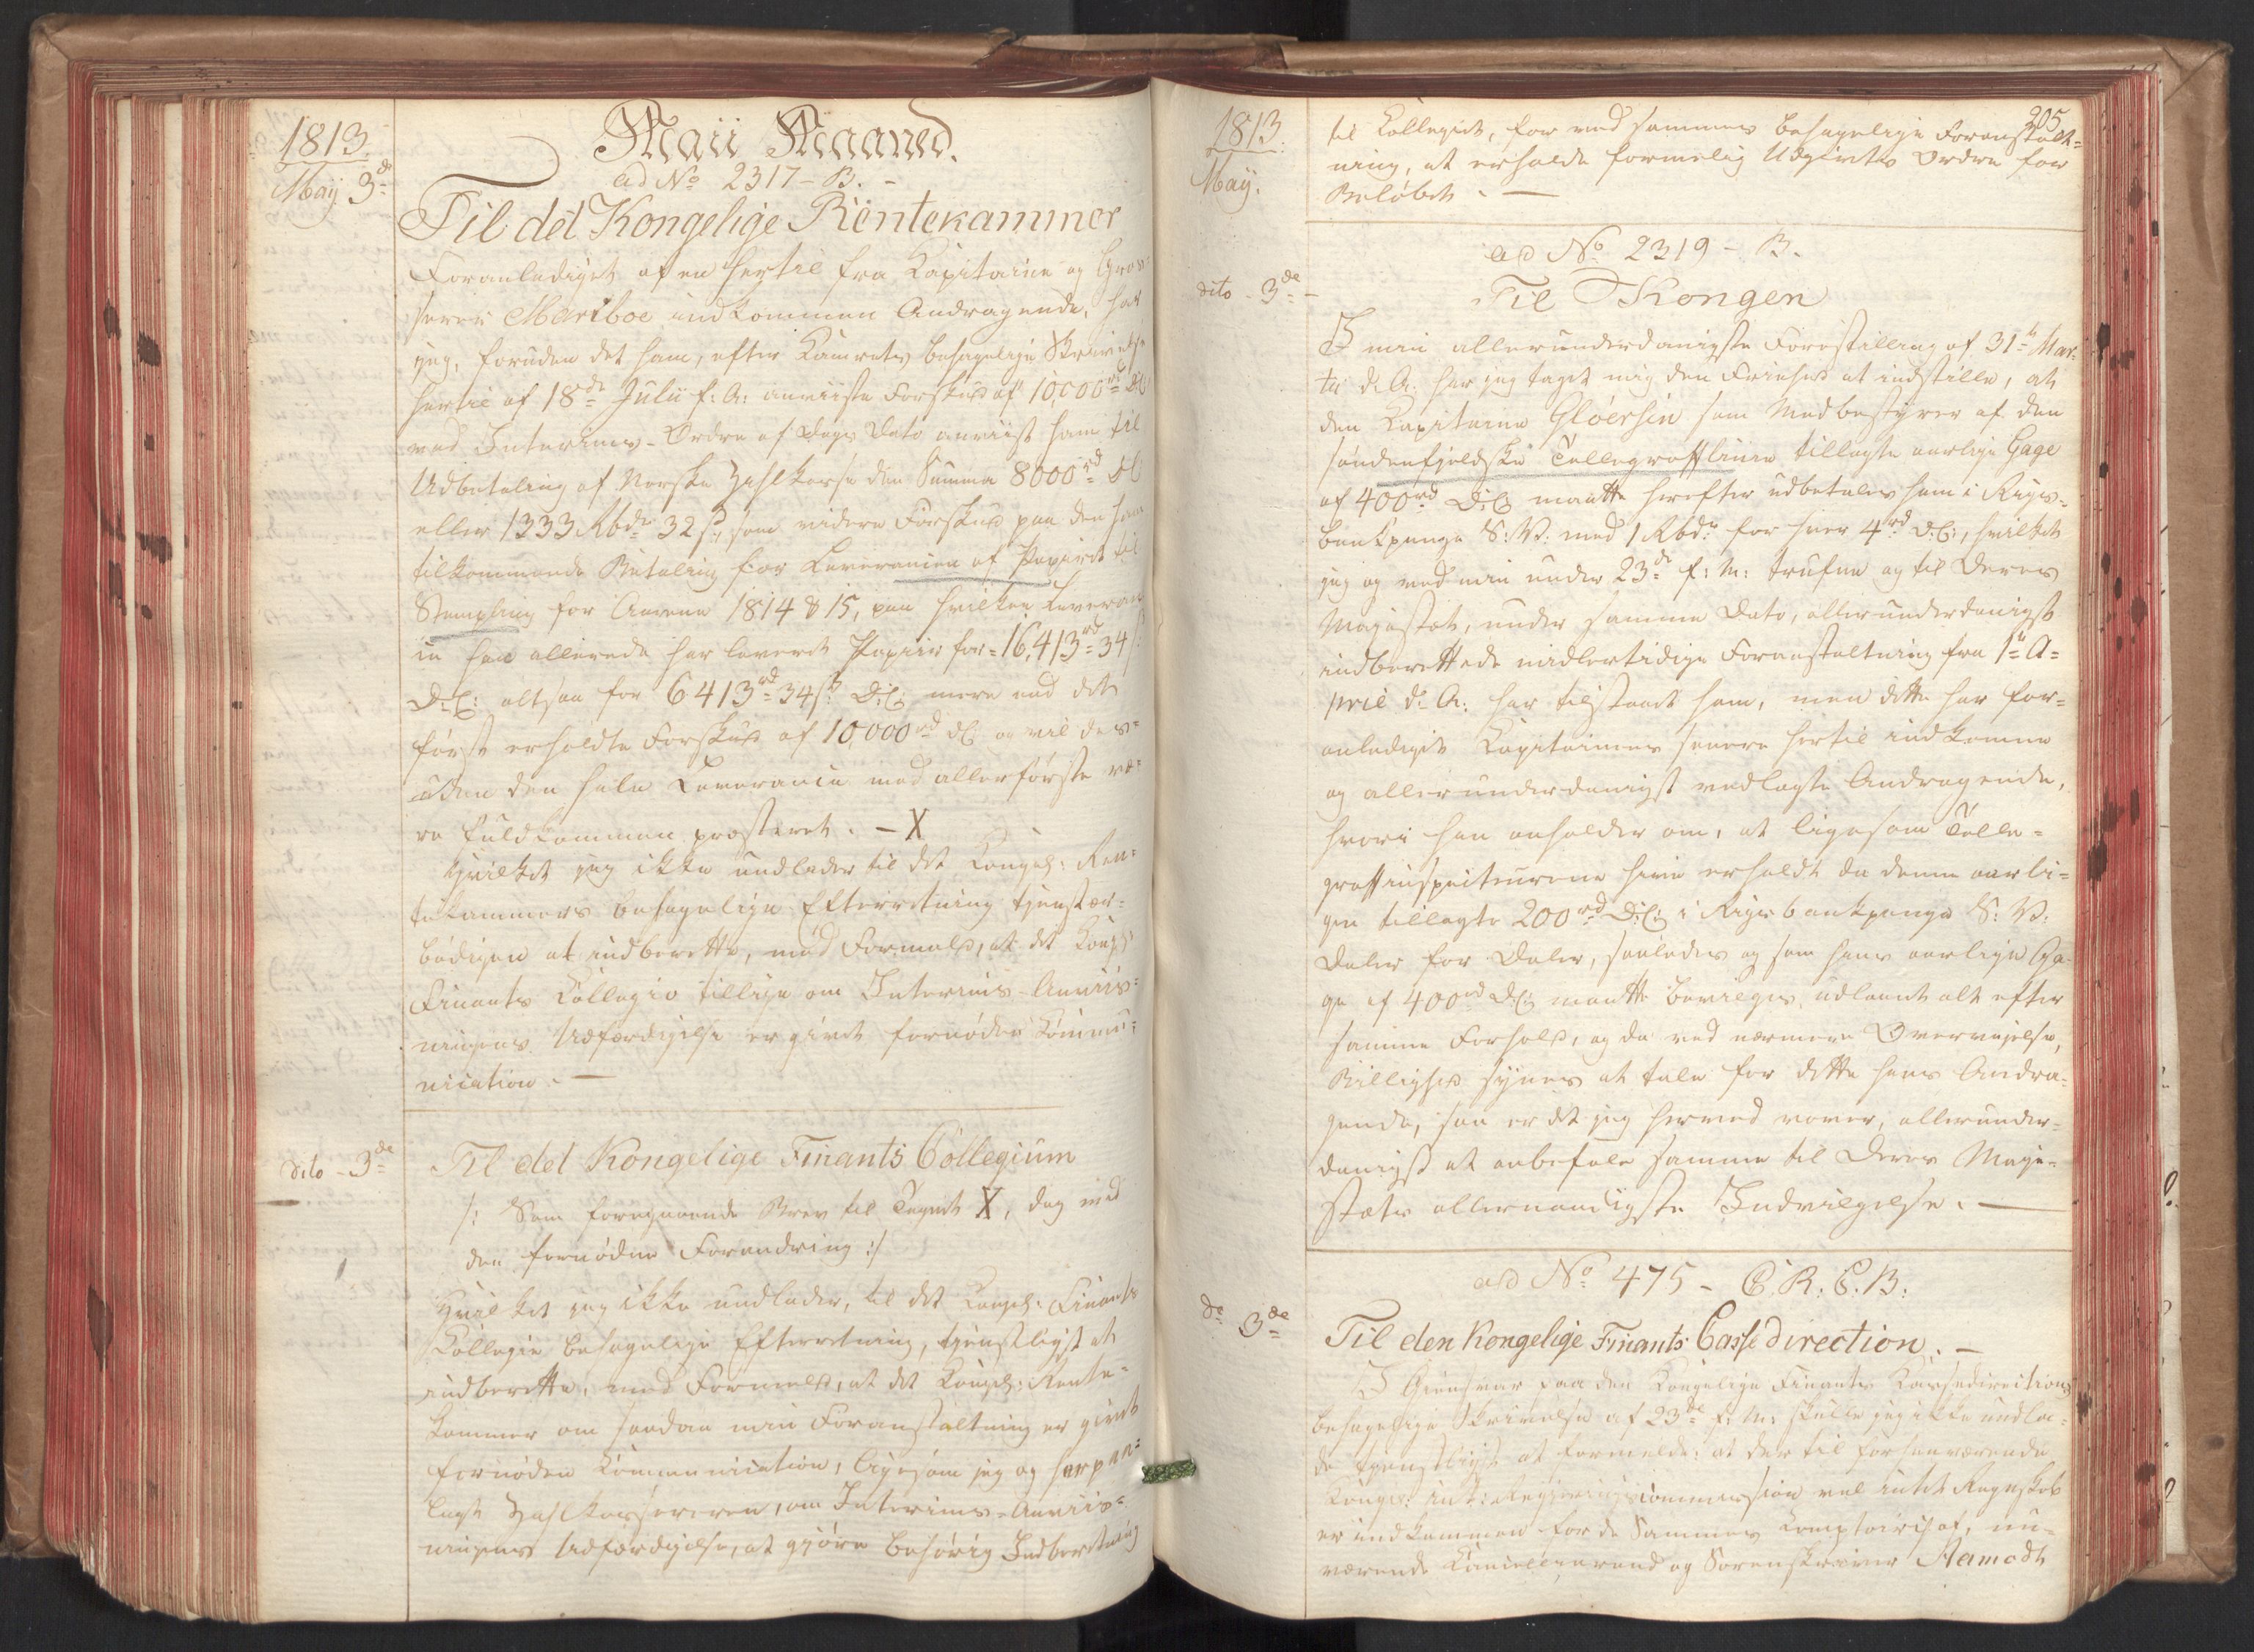 1813.
Maij 3de
Maii Maaned.
ad No 2317 - B. -
Til det Kongelige Rentekammer
Foranlediget af en hertil fra Kapitaine og Gros-
serer Mariboe indkommen Andragende, har
jeg, foruden det ham, efter Kamrets behagelige Skrivelse
hertil af 18de Julii f: A: anviiste Forskud af 10,000 rd DC
ved Interims-Ordre af Dags Dato anviist ham til
Udbetaling af Norske Zahlkasse den Summa 8000 rd DC
eller 1333 Rbdr 32 s, som videre Forskud paa den ham
tilkommende Betaling for Leverancen af Papiret til
Stempling for Aarene 1814 & 15, paa hvilken Leveran-
ce han allerede har leveret Papiir for = 16,413 rd 34 s
D:C: altsaa for 6413 rd 34 s. D:C: mere end det
først erholdte Forskud af 10,000 rd DC og vil des-
uden den hele Leverance med allerførste væ-
re fuldkommen præsteret. - X
Hvilket jeg ikke undlader til det Kongel: Ren-
tekammers behagelige Efterretning tjenstær-
bødigen at indberette, med Formeld, at det Kongl:
Finants Collegio tillige om Interims-Anviis-
ningens Udfærdigelse er givet fornøden Commu-
nication. -
dito - 3de
Til det Kongelige Finants Collegium
/: Som foregaaende Brev til Tegnet X, dog med
den fornødne Forandring :/
Hvilket jeg ikke undlader, til det Kongel: Finants
Collegii behagelige Efterretning, tjenstligst at
indberette, med Formeld, at det Kongel: Rente-
kammer om saadan min Foranstaltning er givet
fornøden Communication, ligesom jeg og har paa-
lagt Zahlkassereren, om Interims-Anviis-
ningens Udfærdigelse, at gjøre behørig Indberetning
205
1813.
Maij.
til Collegiet, for ved sammes behagelige Foranstalt-
ning, at erholde formelig Udgivts Ordre for
Beløbet. -
ad No 2319 - B.
dito - 3de -
Til Kongen
I min allerunderdanigste Forestilling af 31te Mar-
tii d: A: har jeg taget mig den Friehed at indstille, at
den Kapitaine Gløersen som Medbestyrer af den
søndenfjeldske Tellegrafflinie tillagte aarlige Gage
af 400 rd D:C: maatte herefter udbetales ham i Rigs-
bankpenge S: V: med 1 Rbdr for hver 4 rd D:C:, hvilket
jeg og ved min under 23de f: M: trufne og til Deres
Majestæt, under samme Dato, allerunderdanigst
indberettede midlertidige Foranstaltning fra 1te A-
pril d: A: har tilstaaet ham, men dette har for-
anlediget Kapitainens senere hertil indkomne
og allerunderdanigst vedlagte Andragende,
hvori han anholder om, at ligesom Telle-
graffinspecteurerne have erholdt de dem aarli-
gen tillagte 200 rd D:C: i Rigsbankpenge S: V:
Daler for Daler, saaledes og som hans aarlige Ga-
ge af 400 rd D:C: maatte bevilges udlønnet alt efter
samme Forhold, og da ved nærmere Overveielse,
Billighed synes at tale for dette hans Andra-
gende, saa er det jeg herved vover, allerunder-
danigst at anbefale samme til Deres Maje-
stæts allernaadigste Indvilgelse. -
ad No 475 - C. R. C. B:
do 3de
Til den Kongelige Finants Casse direction. -
I Giensvar paa den Kongelige Finants Kassedirections
behagelige Skrivelse af 23de f: M: skulle jeg ikke undla-
de tjenstligst at formelde: at der til forhenværende
Kongel: int: Regjeringscommission vel intet Regnskab
er indkommen for de Sammes Comptoirchef, nu-
værende Cancellieraad og Sorenskriver Aamodt